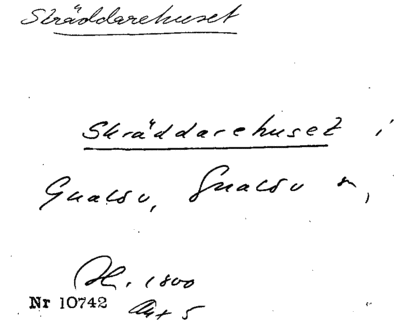 Skräddarehuset
Skräddarehuset i
Gualöv, Gualöv sn,
1800
Nr 10742 Akt 5